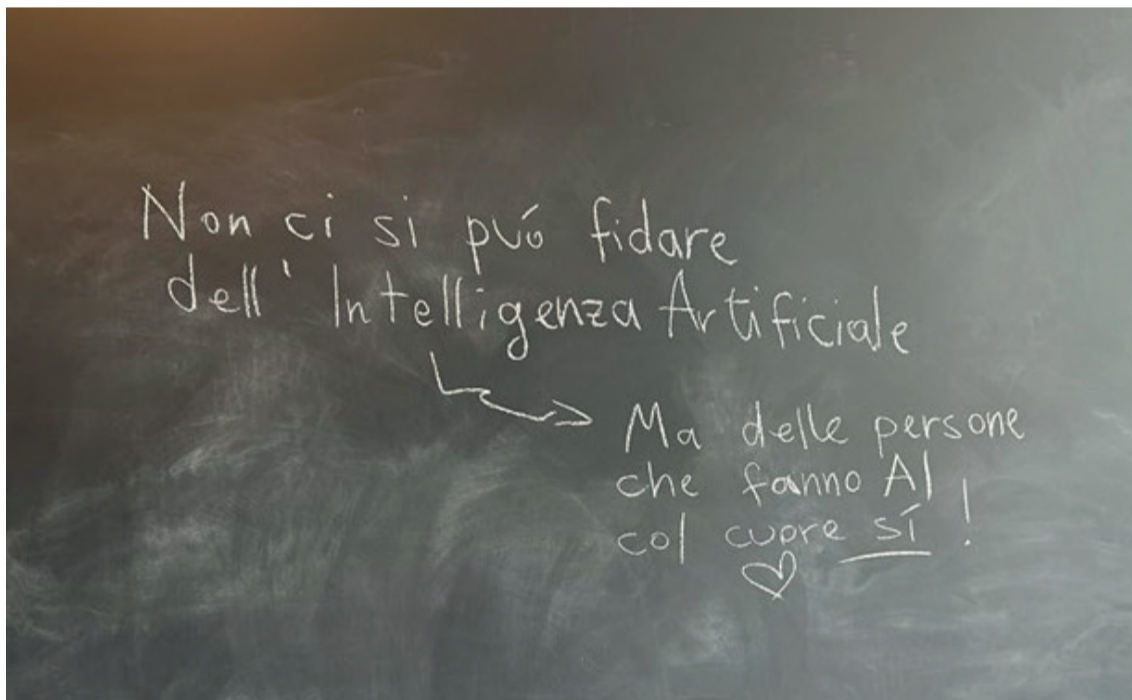 Non ci si puó fidare
dell' Intelligenza Artificiale
Ma delle persone
che fanno AI
col cuore sí !